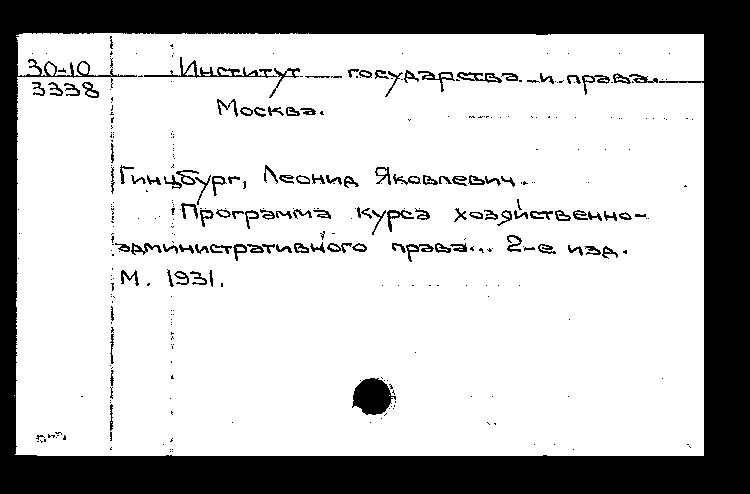 30-10 Институт государства и права.
3338
Москва.
Гинцбург, Леонид Яковлевич.
Программа курса хозяйственно-
административного права... 2-е изд.
М. 1931.